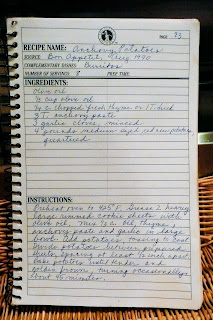 PAGE 23
RECIPE NAME: Anchovy Potatoes
SOURCE: Bon Appetit, Aug 1990
COMPLEMENTARY DISHES: Burritos
NUMBER OF SERVINGS 8 PREP TIME
INGREDIENTS:
Olive oil
1/2 cup olive oil
1/4 c. chopped fresh thyme or 1 T. dried
3 T. anchovy paste
3 garlic cloves, minced
4 pounds medium-sized red new potatoes,
quartered
INSTRUCTIONS:
Preheat oven to 425° F. Grease 2 heavy
large rimmed cookie sheets with
olive oil. Mix 1/2 c. oil, thyme,
anchovy paste and garlic in large
bowl. Add potatoes, tossing to coat.
Divide potatoes between prepared
sheets, spacing at least 1 inch apart.
Bake potatoes until tender and
golden brown, turning occasionally,
about 40 minutes.